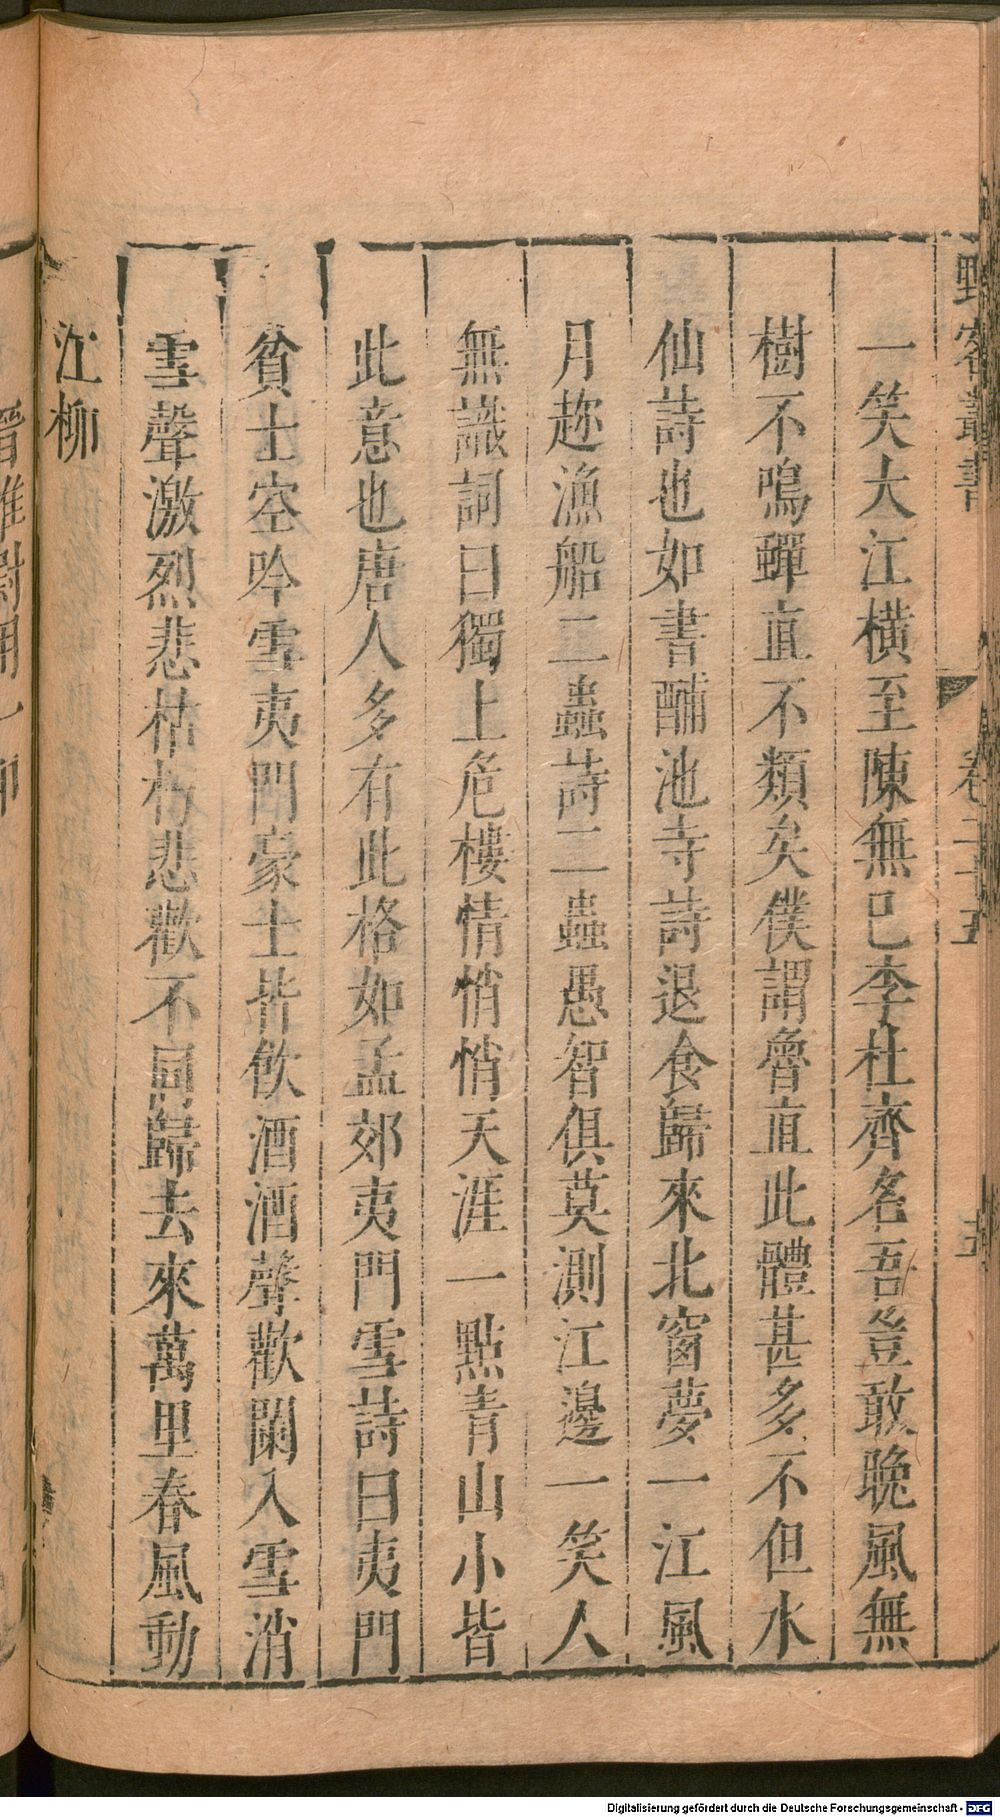 野客叢書
卷二十五
一笑大江橫至陳無巳李杜齊名吾豈敢晚風無
樹不鳴蟬直不類矣僕謂魯直此體甚多不但水
仙詩也如書酺池寺詩退食歸來北窗夢一江風
月趂漁船二蟲詩二蟲愚智俱莫測江邊一笑人
無識詞曰獨上危樓情悄悄天涯一點青山小皆
此意也唐人多有此格如孟郊夷門雪詩曰夷門
貧士空吟雪夷門豪士皆飲酒酒聲歡闌入雪消
雪聲激烈悲枯朽悲歡不同歸去來萬里春風動
江柳
Digitalisierung gefördert durch die Deutsche Forschungsgemeinschaft - DFG